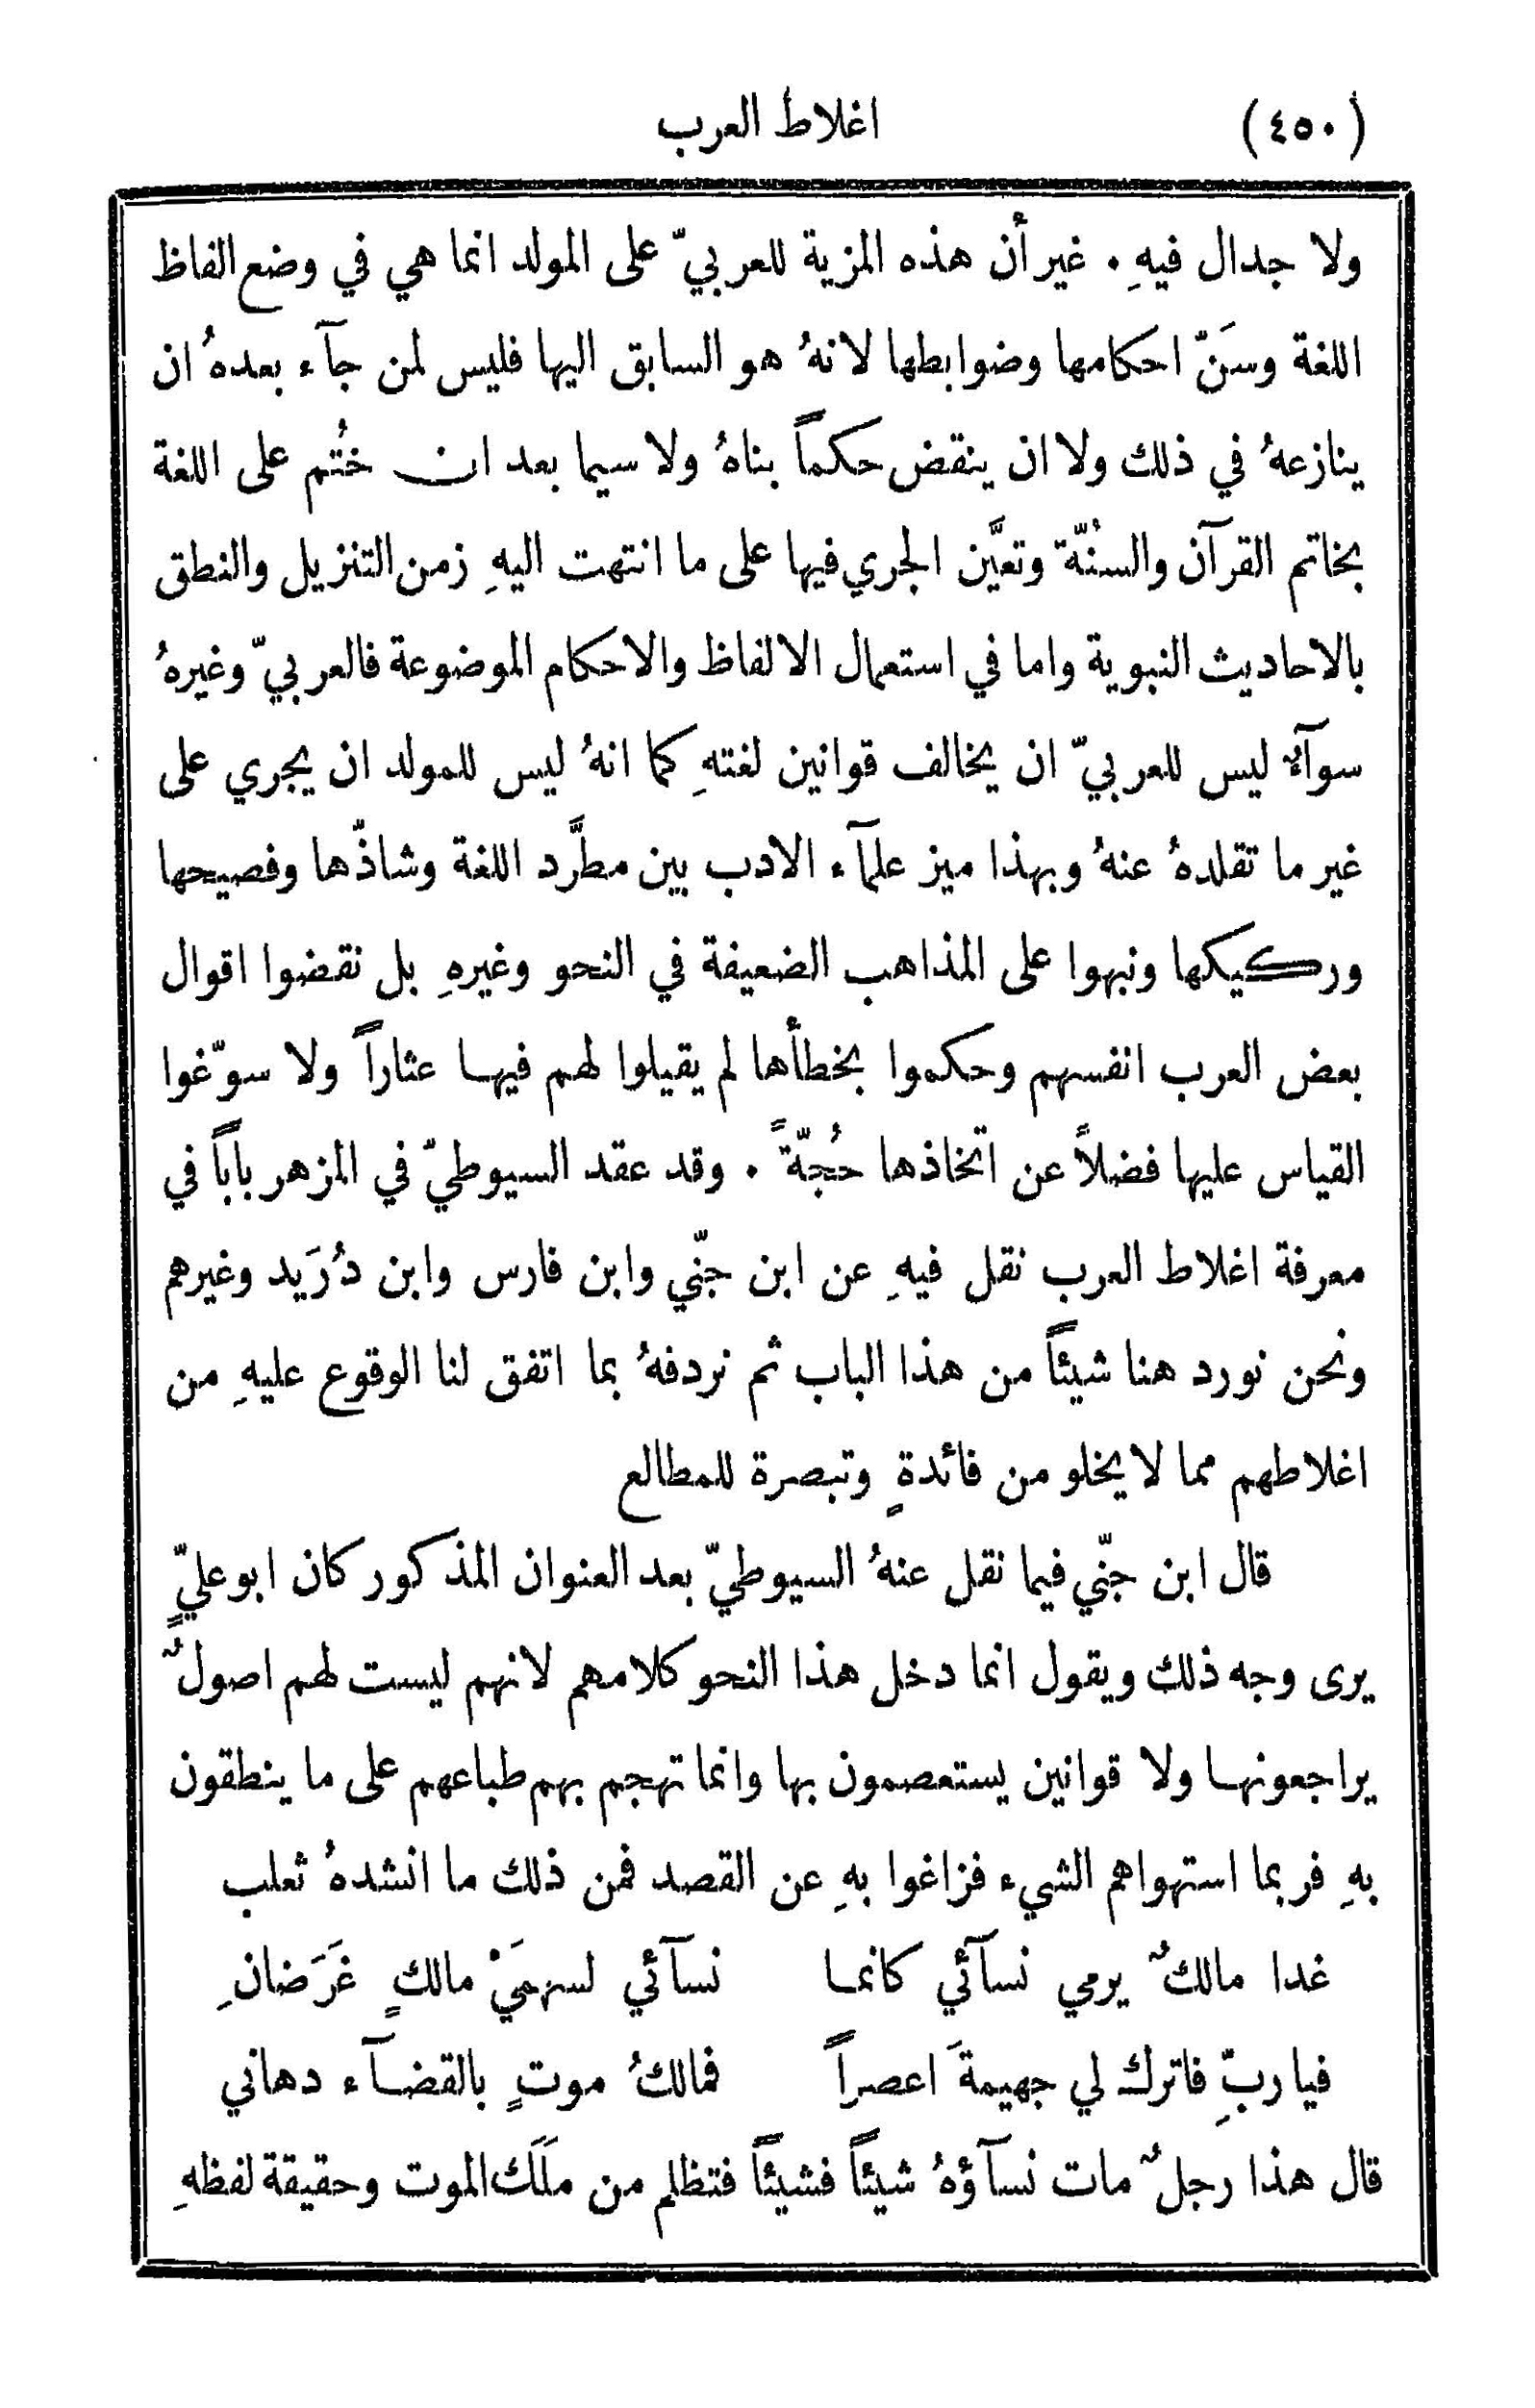 (٤٥٠) اغلاط العرب
ولا جدال فيهِ. غير أن هذه المزية للعربيّ على المولد انما هي في وضع الفاظ
اللغة وسَنّ احكامها وضوابطها لانهُ هو السابق اليها فليس لمن جآء بعدهُ ان
ينازعهُ في ذلك ولا ان ينقض حكماً بناهُ ولا سيما بعد ان خُتم على اللغة
بخاتم القرآن والسنُّة وتعيَّن الجري فيها على ما انتهت اليهِ زمن التنزيل والنطق
بالاحاديث النبوية واما في استعمال الالفاظ والاحكام الموضوعة فالعربيّ وغيرهُ
سوآلا ليس للعربيّ ان يخالف قوانين لغتهِ كما انهُ ليس للمولد ان يجري على
غير ما تقلدهُ عنهُ وبهذا ميز علمآء الادب بين مطَّرد اللغة وشاذّها وفصيحها
وركيكها ونبهوا على المذاهب الضعيفة في النحو وغيرهِ بل نقضوا اقوال
بعض العرب انفسهم وحكموا بخطأها لم يقيلوا لهم فيها عثاراً ولا سوّغوا
القياس عليها فضلاً عن اتخاذها حُجّةً. وقد عقد السيوطيّ في المزهر باباً في
معرفة اغلاط العرب نقل فيهِ عن ابن جنّي وابن فارس وابن دُرَيد وغيرهم
ونحن نورد هنا شيئاً من هذا الباب ثم نردفهُ بما اتفق لنا الوقوع عليهِ من
اغلاطهم مما لا يخلو من فائدةٍ وتبصرة للمطالع
قال ابن جنّي فيما نقل عنهُ السيوطيّ بعد العنوان المذكور كان ابو عليٍّ
يرى وجه ذلك ويقول انما دخل هذا النحو كلامهم لانهم ليست لهم اصولٌ
يراجعونها ولا قوانين يستعصمون بها وانما تهجم بهم طباعهم على ما ينطقون
بهِ فربما استهواهم الشيء فزاغوا بهِ عن القصد فمن ذلك ما انشدهُ ثعلب
غدا مالكٌ يرمي نسآئي كانما نسآئي لسهمَيْ مالكٍ غَرَضانِ
فيا ربِّ فاترك لي جهيمةَ اعصراً فمالكُ موتٍ بالقضآء دهاني
قال هذا رجلٌ مات نسآؤهُ شيئاً فشيئاً فتظلم من ملَك الموت وحقيقة لفظهِ